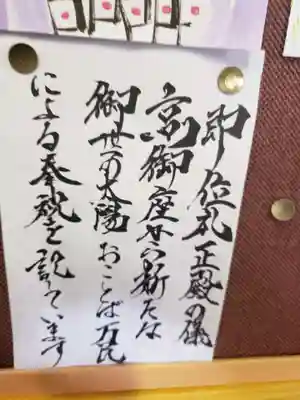 即位礼正殿の儀
高御座せの新たな
御世の太陽おことば万民
による奉祝を記ています